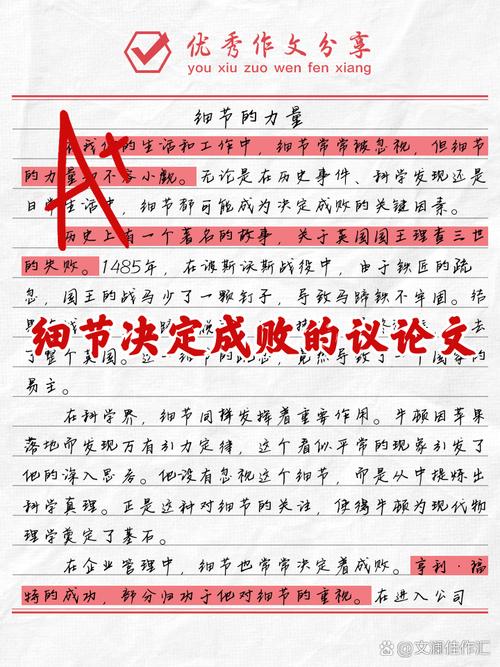 优秀作文分享
you xiu zuo wen fen xiang
细节的力量
我们的生活和工作中，细节常常被忽视，但细节
的力量 不容小觑。无论是在历史事件、科学发现还是
日常生活中，细节都可能成为决定成败的关键因素。
历史上有一个著名的故事，关于英国国王理查三世
的失败。1485年，在波斯沃斯战役中，由于铁匠的疏
忽，国王的战马少了一颗钉子，导致马蹄铁不牢固。结
细节决定成败的议论文
了整个英国。这一 导致了一个国家的
易主。
在科学界，细节同样发挥着重要作用。牛顿因苹果
落地而发现万有引力定律，这个看似平常的现象引发了
他的深入思考。他没有忽视这个细节，而是从中提炼出
科学真理。正是这种对细节的关注，使得牛顿为现代物
理学奠定了基石。
在企业管理中，细节也常常决定着成败。亨利·福
特的成功，部分归功于他对细节的重视。在进入公司
A+
文澜佳作汇